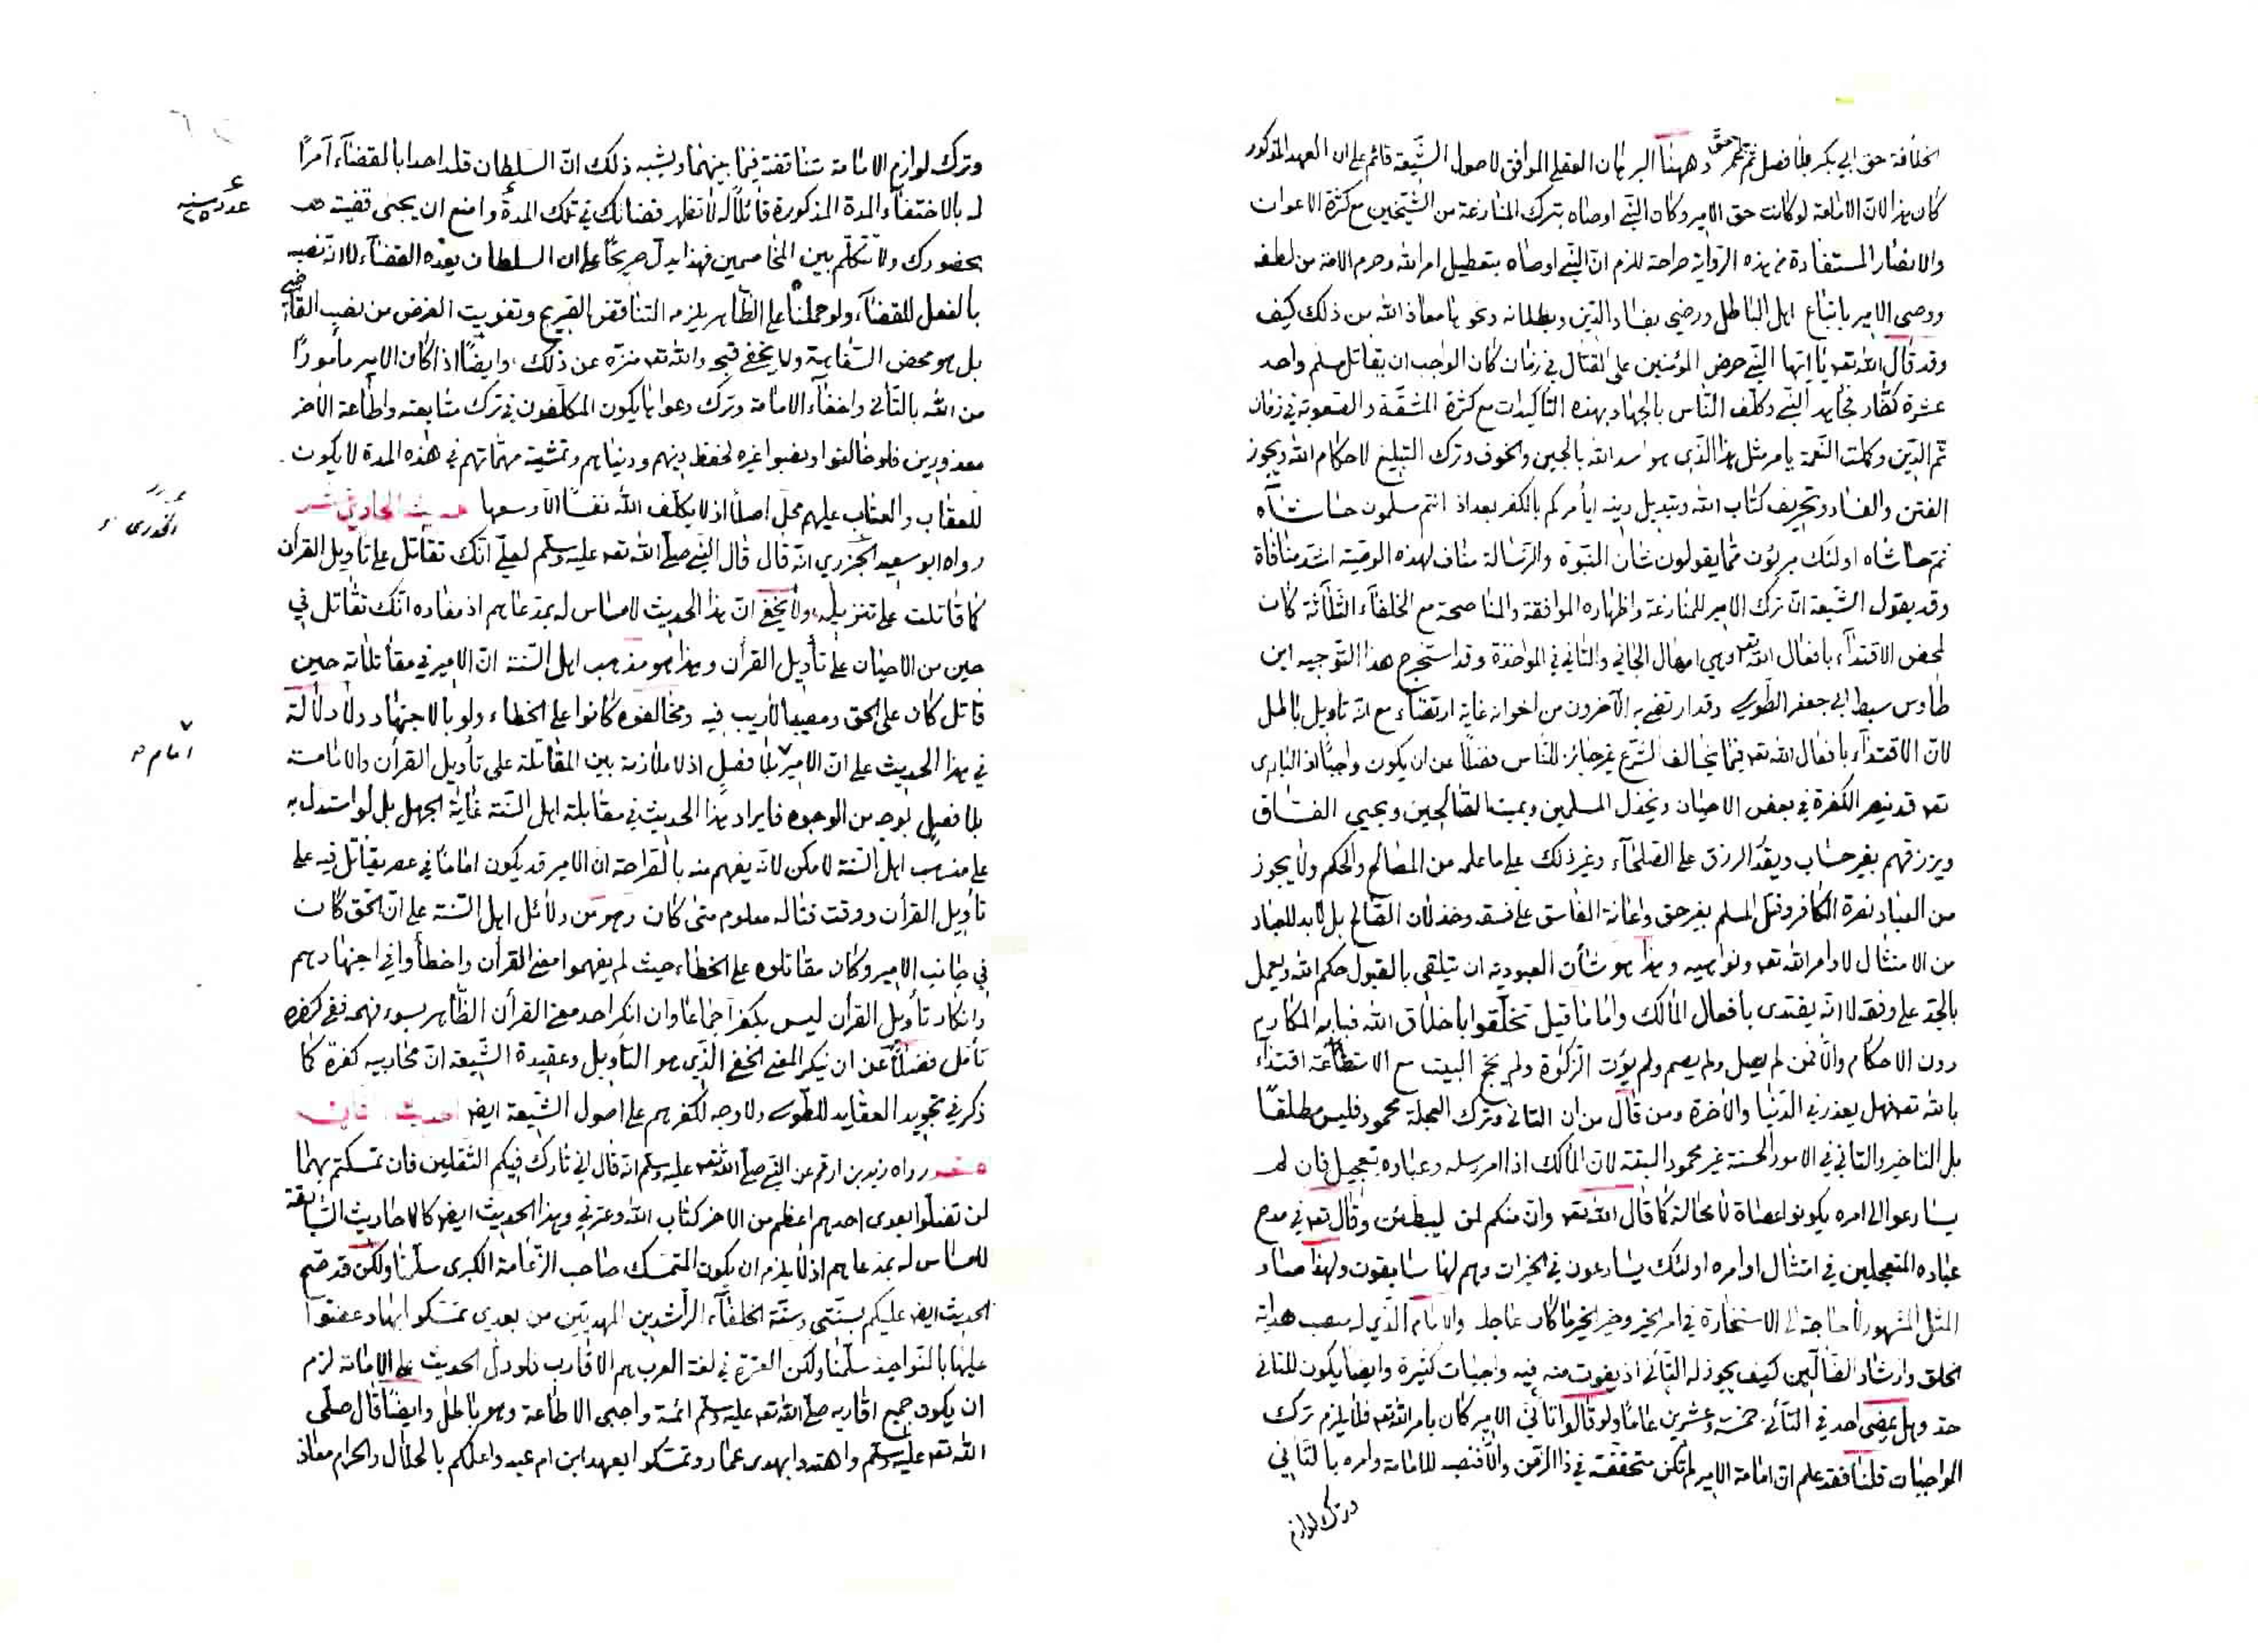 الخلافة حق ابي بكر بلا فصل ثم حق عمر وههنا البرهان العقلي الموافق لاصول الشيعة قائم على ان العهد المذكور
كان هذا لان الامامة لو كانت حق الامير وكان النبي اوصاه بترك المنازعة من الشيخين مع كثرة الاعوان
والانصار المستفادة من هذه الرواية صراحة للزم ان النبي اوصاه بتعطيل امر الله وحرم الامة من لطفه
ووصى الامير باتباع اهل الباطل ورضي بفساد الدين وبطلانه ونحوها معاذ الله من ذلك كيف
وقد قال الله تعه يا ايها النبي حرض المؤمنين على القتال في زمان كان الواجب ان يقاتل مسلم واحد
عشرة كفار فجاهد النبي وكلف الناس بالجهاد بهذه التأكيدات مع كثرة المشقة والصعوبة في زمان
تم الدين وكملت النعمة يأمر مثل هذا الذي هو اسد الله بالجبن والخوف وترك التبليغ لاحكام الله ويجوز
الفتن والفساد وتحريف كتاب الله وتبديل دينه ايأمركم بالكفر بعد اذ انتم مسلمون حاشاه
ثم حاشاه اولئك مبرؤن مما يقولون شان النبوة والرسالة مناف لهذه الوصية اشد منافاة
وقد يقول الشيعة ان ترك الامير للمنازعة واظهاره الموافقة والمناصحة مع الخلفاء الثلاثة كان
لمحض الاقتداء بافعال الله تعه وهي امهال الجاني والتاني في المواخذة وقد استخرج هذا التوجيه ابن
طاوس سبط ابي جعفر الطوسي وقد ارتضى به الآخرون من اخوانه غاية ارتضاء مع انه تأويل باطل
لان الاقتداء بافعال الله تعه فيما يخالف الشرع غير جائز للناس فضلا عن ان يكون واجبا اذ الباري
تعه قد ينصر الكفرة في بعض الاحيان ويخذل المسلمين ويميت الصالحين ويحيي الفساق
ويرزقهم بغير حساب ويقدر الرزق على الصلحاء وغير ذلك على ما علمه من المصالح والحكم ولا يجوز
من العباد نصرة الكافر وقتل المسلم بغير حق واعانة الفاسق على فسقه وخذلان الصالح بل لا بد للعباد
من الامتثال لاوامر الله تعه ونواهيه وهذا هو شأن العبودية ان يتلقى بالقبول حكم الله ويعمل
بالجد على وفقه لا انه يقتدى بأفعال المالك واما ما قيل تخلقوا باخلاق الله فبابه المكارم
دون الاحكام والا فمن لم يصل ولم يصم ولم يؤت الزكوة ولم يحج البيت مع الاستطاعة اقتداء
بالله تعه فهل يعذر في الدنيا والاخرة ومن قال من ان التاني وترك العجلة محمود فليس مطلقا
بل التاخير والتاني في الامور الحسنة غير محمود البتة لان المالك اذا امر رسله وعباده بتعجيل فان لم
يسارعوا الى امره يكونوا عصاة لا محالة كما قال الله تعه وان منكم لمن ليبطئن وقال تعه في مدح
عباده المتعجلين في امتثال اوامره اولئك يسارعون في الخيرات وهم لها سابقون ولهذا صار
المثل المشهور لا حاجة الى الاستخارة في امر الخير وخير الخير ما كان عاجله والامام الذي له منصب هداية
الخلق وارشاد الضالين كيف يجوز له التأني اذ يفوت منه فيه واجبات كثيرة وايضا يكون للتاني
حد وهل يمضى احد في التأني خمسة وعشرين عاما ولو قالوا تأني الامير كان بامر الله تعه فلا يلزم ترك
الواجبات قلنا فقد علم ان امامة الامير لم تكن متحققة في ذا الزمن والا فنصبه للامامة وامره بالتاني
وترك لوازم
وترك لوازم الامامة متناقضة فيما بينهما ويشبه ذلك ان السلطان قلد احدا بالقضاء آمرا
له بالاختفاء المدة المذكورة قائلا له لا تظهر قضائك في تلك المدة وامنع ان يجئ قضية
بحضورك ولا تتكلم بين المخاصمين فهذا يدل صريحا على ان السلطان يعده القضاء لا انه نصبه
بالفعل للقضاء ولو حملنا على الظاهر يلزم التناقض القريح وتفويت الغرض من نصب القاضي
بل هو محض السفاهة ولا يخفى قبحه والله تعه منزه عن ذلك وايضا اذا كان الامير مأمورا
من الله بالتأني واخفاء الامامة وترك دعواها يكون المكلفون في ترك متابعته واطاعة الآخر
معذورين فلو خالفوا ونصبوا غيره لحفظ دينهم ودنياهم وتمشية مهماتهم في هذه المدة لا يكون
للعقاب والعتاب عليهم محل اصلا اذ لا يكلف الله نفسا الا وسعها حديث الحادي عشر
رواه ابو سعيد الجزري انه قال قال النبي صلى الله تعه عليه وسلم لعلي انك تقاتل على تأويل القرآن
كما قاتلت على تنزيله ولا يخفى ان هذا الحديث لا مساس له بمدعاهم اذ مفاده انك تقاتل في
حين من الاحيان على تأويل القرآن وهذا هو مذهب اهل السنة ان الامير في مقاتلاته حين
قاتل كان على الحق ومصيبا لا ريب فيه ومخالفوه كانوا على الخطاء ولو بالاجتهاد ولا دلالة
في هذا الحديث على ان الامير بلا فصل اذ لا ملازمة بين المقاتلة على تأويل القرآن والامامة
بلا فصل بوجه من الوجوه فايراد هذا الحديث في مقابلة اهل السنة غاية الجهل بل لو استدل به
على مذهب اهل السنة لامكن لانه يفهم منه بالصراحة ان الامير قد يكون اماما في عصر يقاتل فيه على
تأويل القرآن ووقت قتاله معلوم متى كان وهو من دلائل اهل السنة على ان الحق كان
في جانب الامير وكان مقاتلوه على الخطاء حيث لم يفهموا معنى القرآن واخطأوا في اجتهادهم
وانكار تأويل القرآن ليس بكفر اجماعا وان انكر احد معنى القرآن الظاهر بسوء فهمه ففي كفره
تأمل فضلا عن ان ينكر المعنى الخفي الذي هو التأويل وعقيدة الشيعة ان محاربيه كفرة كما
ذكر في تجريد العقايد للطوسي ولا وجه لكفرهم على اصول الشيعة ايضا حديث الثاني
عشر رواه زيد بن ارقم عن النبي صلى الله تعه عليه وسلم انه قال اني تارك فيكم الثقلين فان تمسكتم بهما
لن تضلوا بعدي احدهم اعظم من الاخر كتاب الله وعترتي وهذا الحديث ايضا كالاحاديث السابقة
لا مساس له بمدعاهم اذ لا يلزم ان يكون المتمسك صاحب الزعامة الكبرى سلمنا ولكن قد صح
الحديث ايضا عليكم بسنتي وسنة الخلفاء الراشدين المهديين من بعدي تمسكوا بها وعضوا
عليها بالنواجذ سلمنا ولكن العترة في لغة العرب هم الاقارب فلو دل الحديث على الامامة لزم
ان يكون جميع اقاربه صلى الله تعه عليه وسلم ائمة واجبي الاطاعة وهو باطل وايضا قال صلى
الله تعه عليه وسلم واهتدوا بهدى عمار وتمسكوا بعهد ابن ام عبد واعلمكم بالحلال والحرام معاذ
الخدري
امام